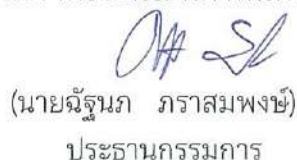 (นายฉัฐนภ ภราสมพงษ์)
ประธานกรรมการ